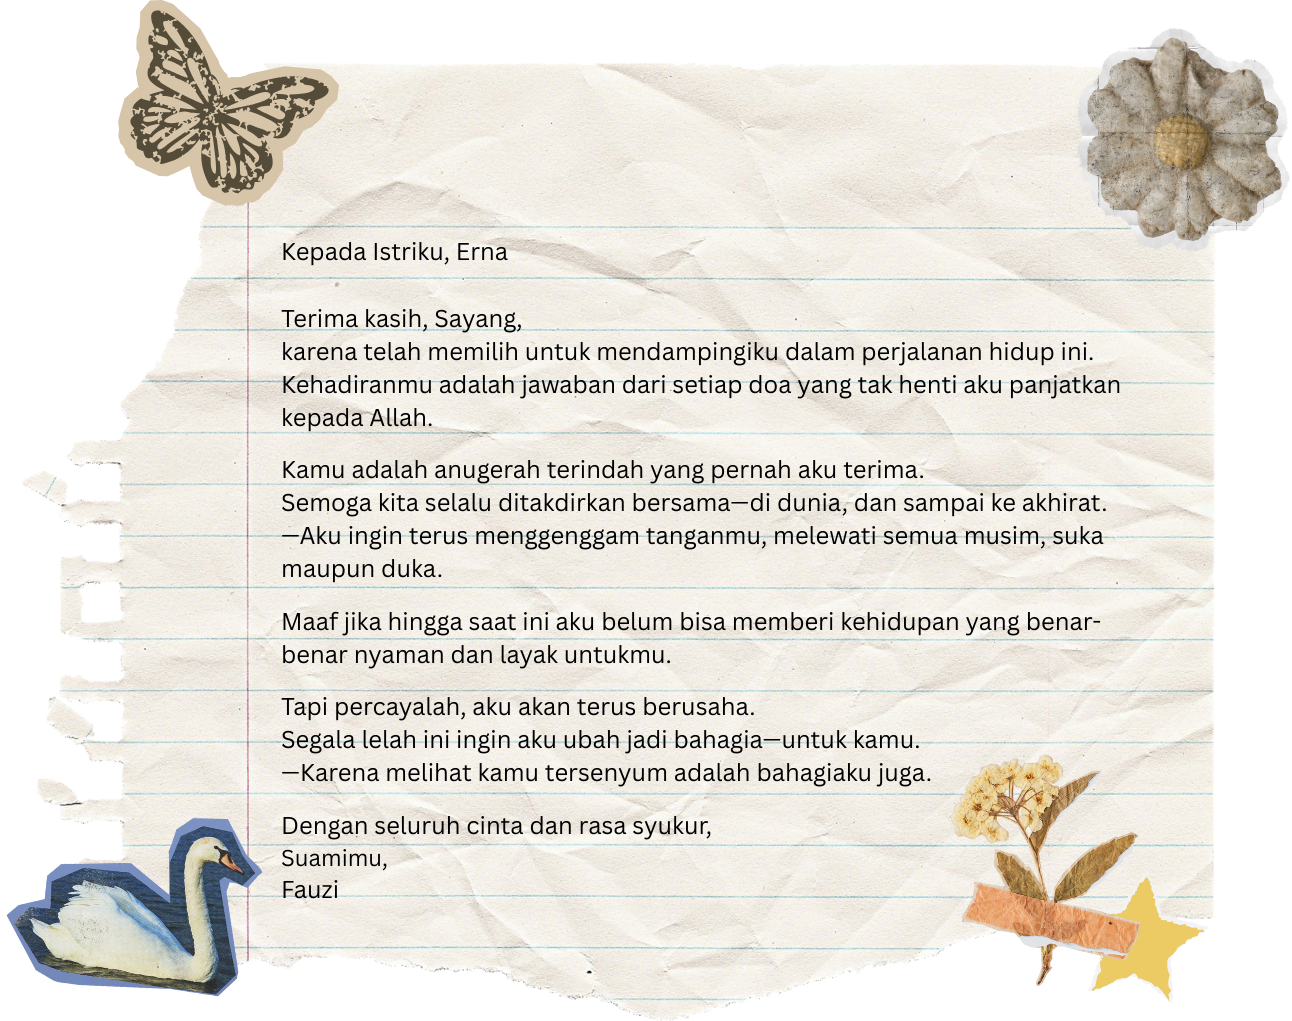 Kepada Istriku, Erna
Terima kasih, Sayang,
karena telah memilih untuk mendampingiku dalam perjalanan hidup ini.
Kehadiranmu adalah jawaban dari setiap doa yang tak henti aku panjatkan
kepada Allah.
Kamu adalah anugerah terindah yang pernah aku terima.
Semoga kita selalu ditakdirkan bersama—di dunia, dan sampai ke akhirat.
—Aku ingin terus menggenggam tanganmu, melewati semua musim, suka
maupun duka.
Maaf jika hingga saat ini aku belum bisa memberi kehidupan yang benar-
benar nyaman dan layak untukmu.
Tapi percayalah, aku akan terus berusaha.
Segala lelah ini ingin aku ubah jadi bahagia—untuk kamu.
—Karena melihat kamu tersenyum adalah bahagiaku juga.
Dengan seluruh cinta dan rasa syukur,
Suamimu,
Fauzi